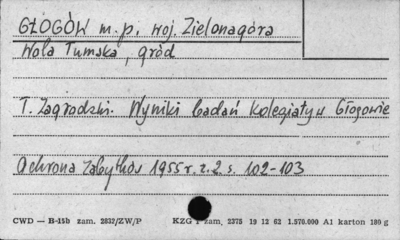 GŁOGÓW m.p. woj. Zielonagóra
Wola Tumska, gród
T. Zagrodzki. Wyniki badań Kolegiaty w Głogowie
Ochrona Zabytków 1955 r. z. 2. s. 102-103
CWD — B-15b zam. 2832/ZW/P KZG zam, 2375 19 12 62 1.570.000 A1 karton 180 g